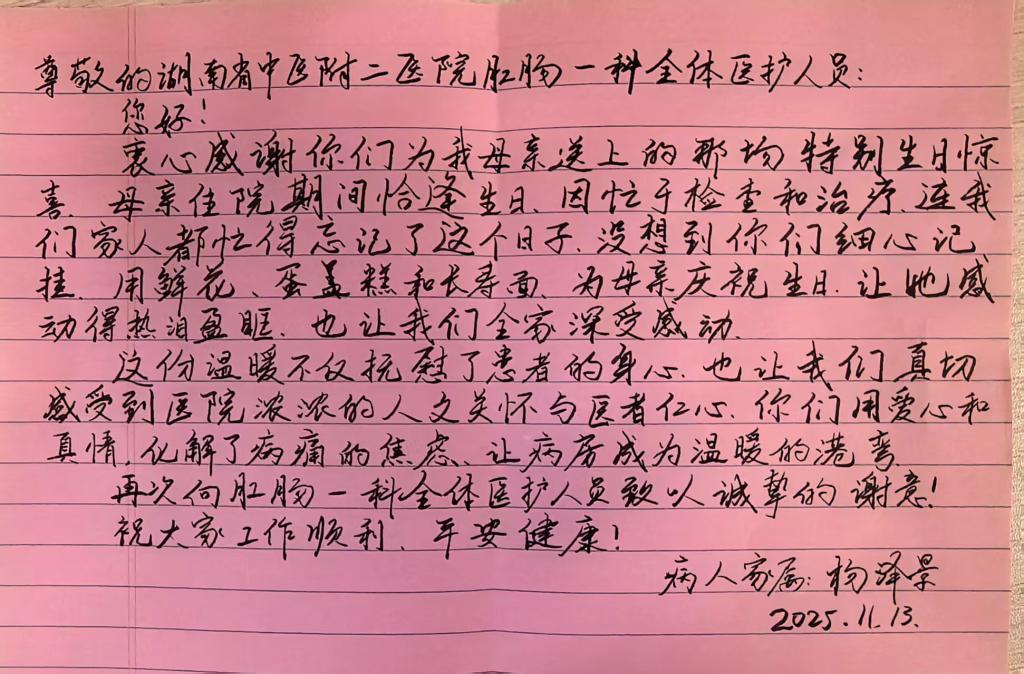 尊敬的湖南省中医附二医院肛肠一科全体医护人员：
您好！
衷心感谢你们为我母亲送上的那场特别生日惊
喜、母亲住院期间恰逢生日、因忙于检查和治疗、连我
们家人都忙得忘记了这个日子、没想到你们细心记
挂、用鲜花、蛋盖糕和长寿面、为母亲庆祝生日、让她感
动得热泪盈眶、也让我们全家深受感动、
这份温暖不仅抚慰了患者的身心、也让我们真切
感受到医院浓浓的人文关怀与医者仁心、你们用爱心和
真情，化解了病痛的焦虑、让病房成为温暖的港弯、
再次向肛肠一科全体医护人员致以诚挚的谢意！
祝大家工作顺利、平安健康！
病人家属：杨泽景
2025.11.13.